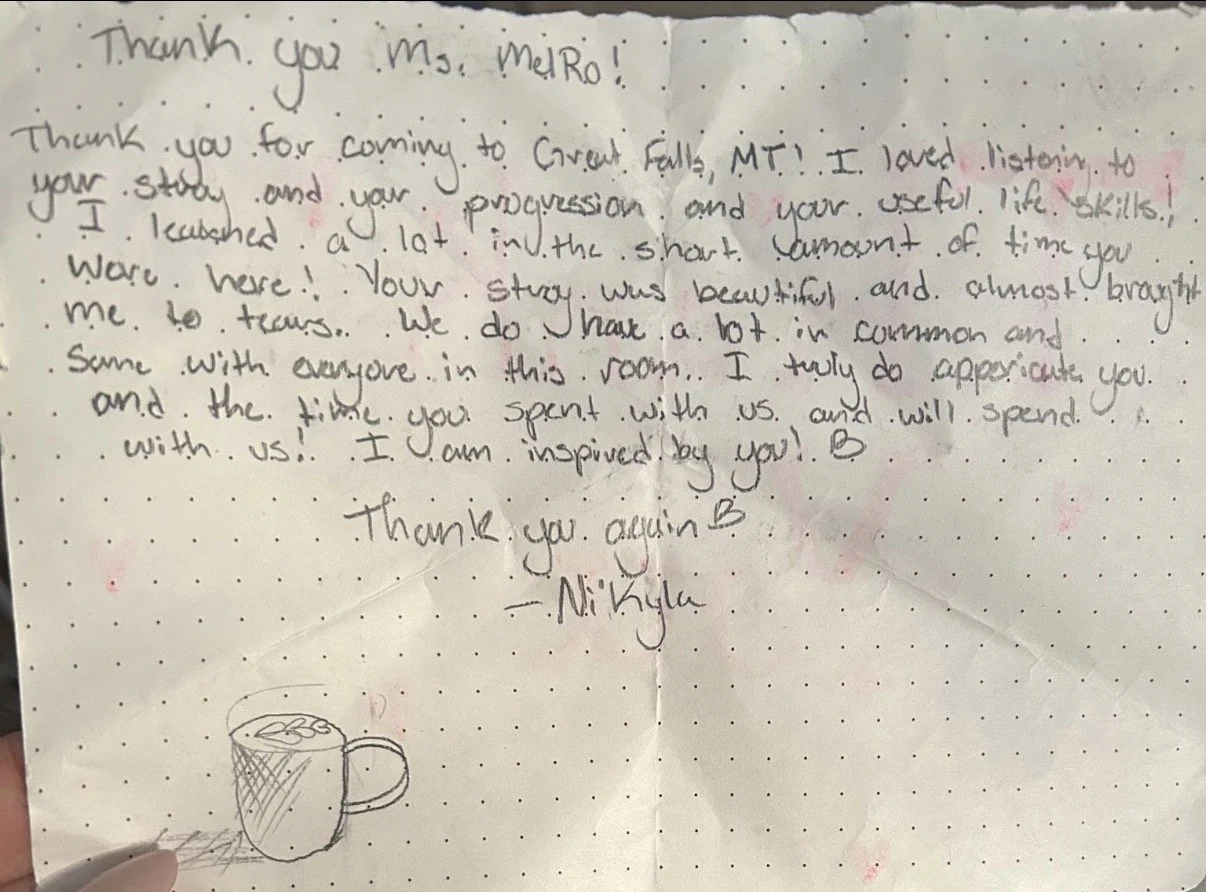 Thank you Ms. MelRo!
Thank you for coming to Great Falls, MT! I loved listenin to
your stroy and your progression and your useful life skills!
I learned a lot in the short amount of time you
were here! Your stroy was beautiful and almost brought
me to tears. We do have a lot in common and
same with everyone in this room. I truly do appericate you
and the time you spent with us and will spend
with us! I am inspired by you! B
Thank you again B
— Ni'Kyla